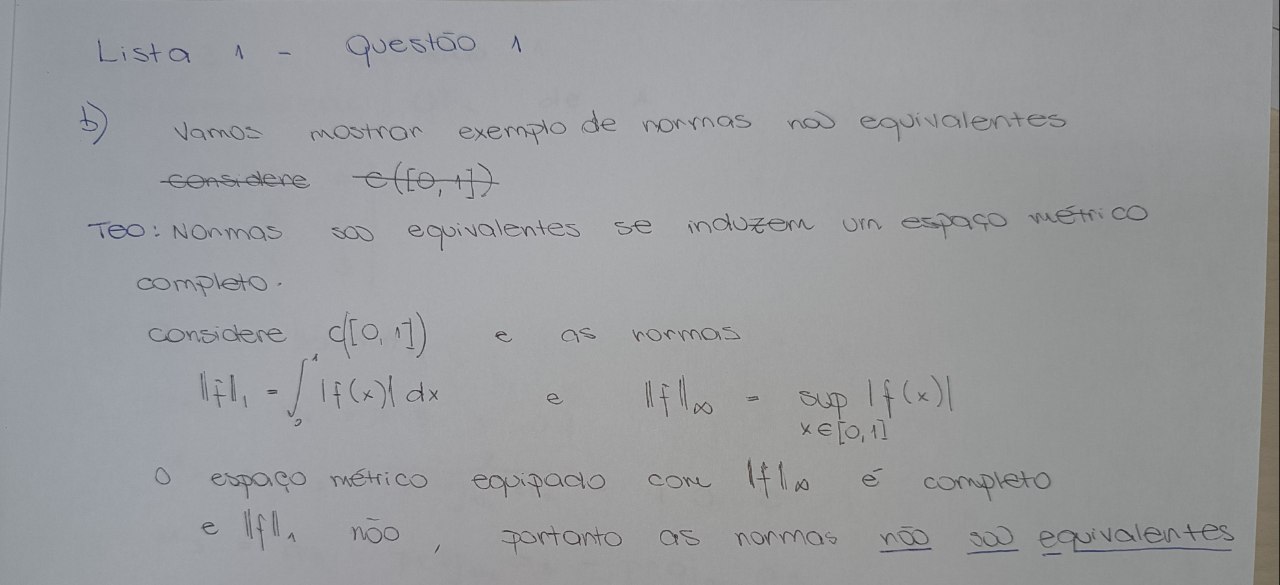 Lista 1 - Questão 1
b) Vamos mostrar exemplo de normas não equivalentes
considere C([0,1])
Teo: Normas são equivalentes se induzem um espaço métrico
completo.
considere C([0,1]) e as normas
||f||₁ = ∫₀¹ |f(x)| dx e ||f||∞ = sup |f(x)|
x∈[0,1]
O espaço métrico equipado com ||f||∞ é completo
e ||f||₁ não, portanto as normas não são equivalentes